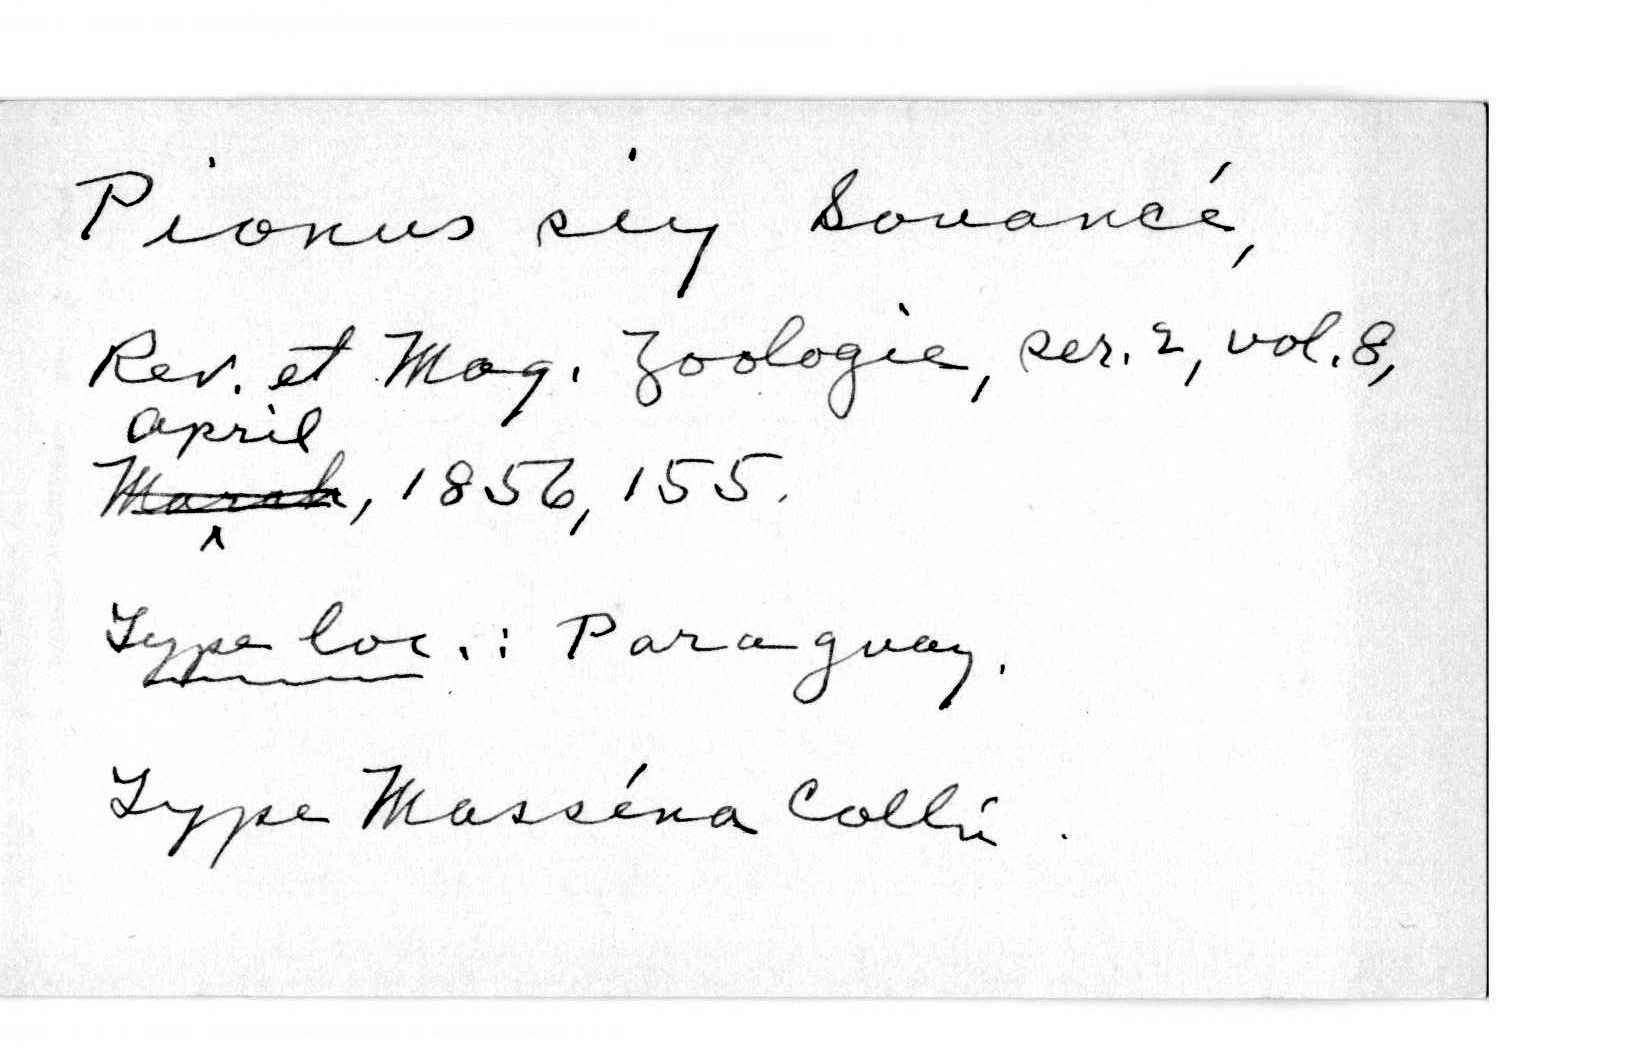 Pionus siy Souancé,
Rev. et Mag. Zoologie, ser. 2, vol. 8,
April
March, 1856, 155.
^
Type loc.: Paraguay.
Type Masséna Coll'n.